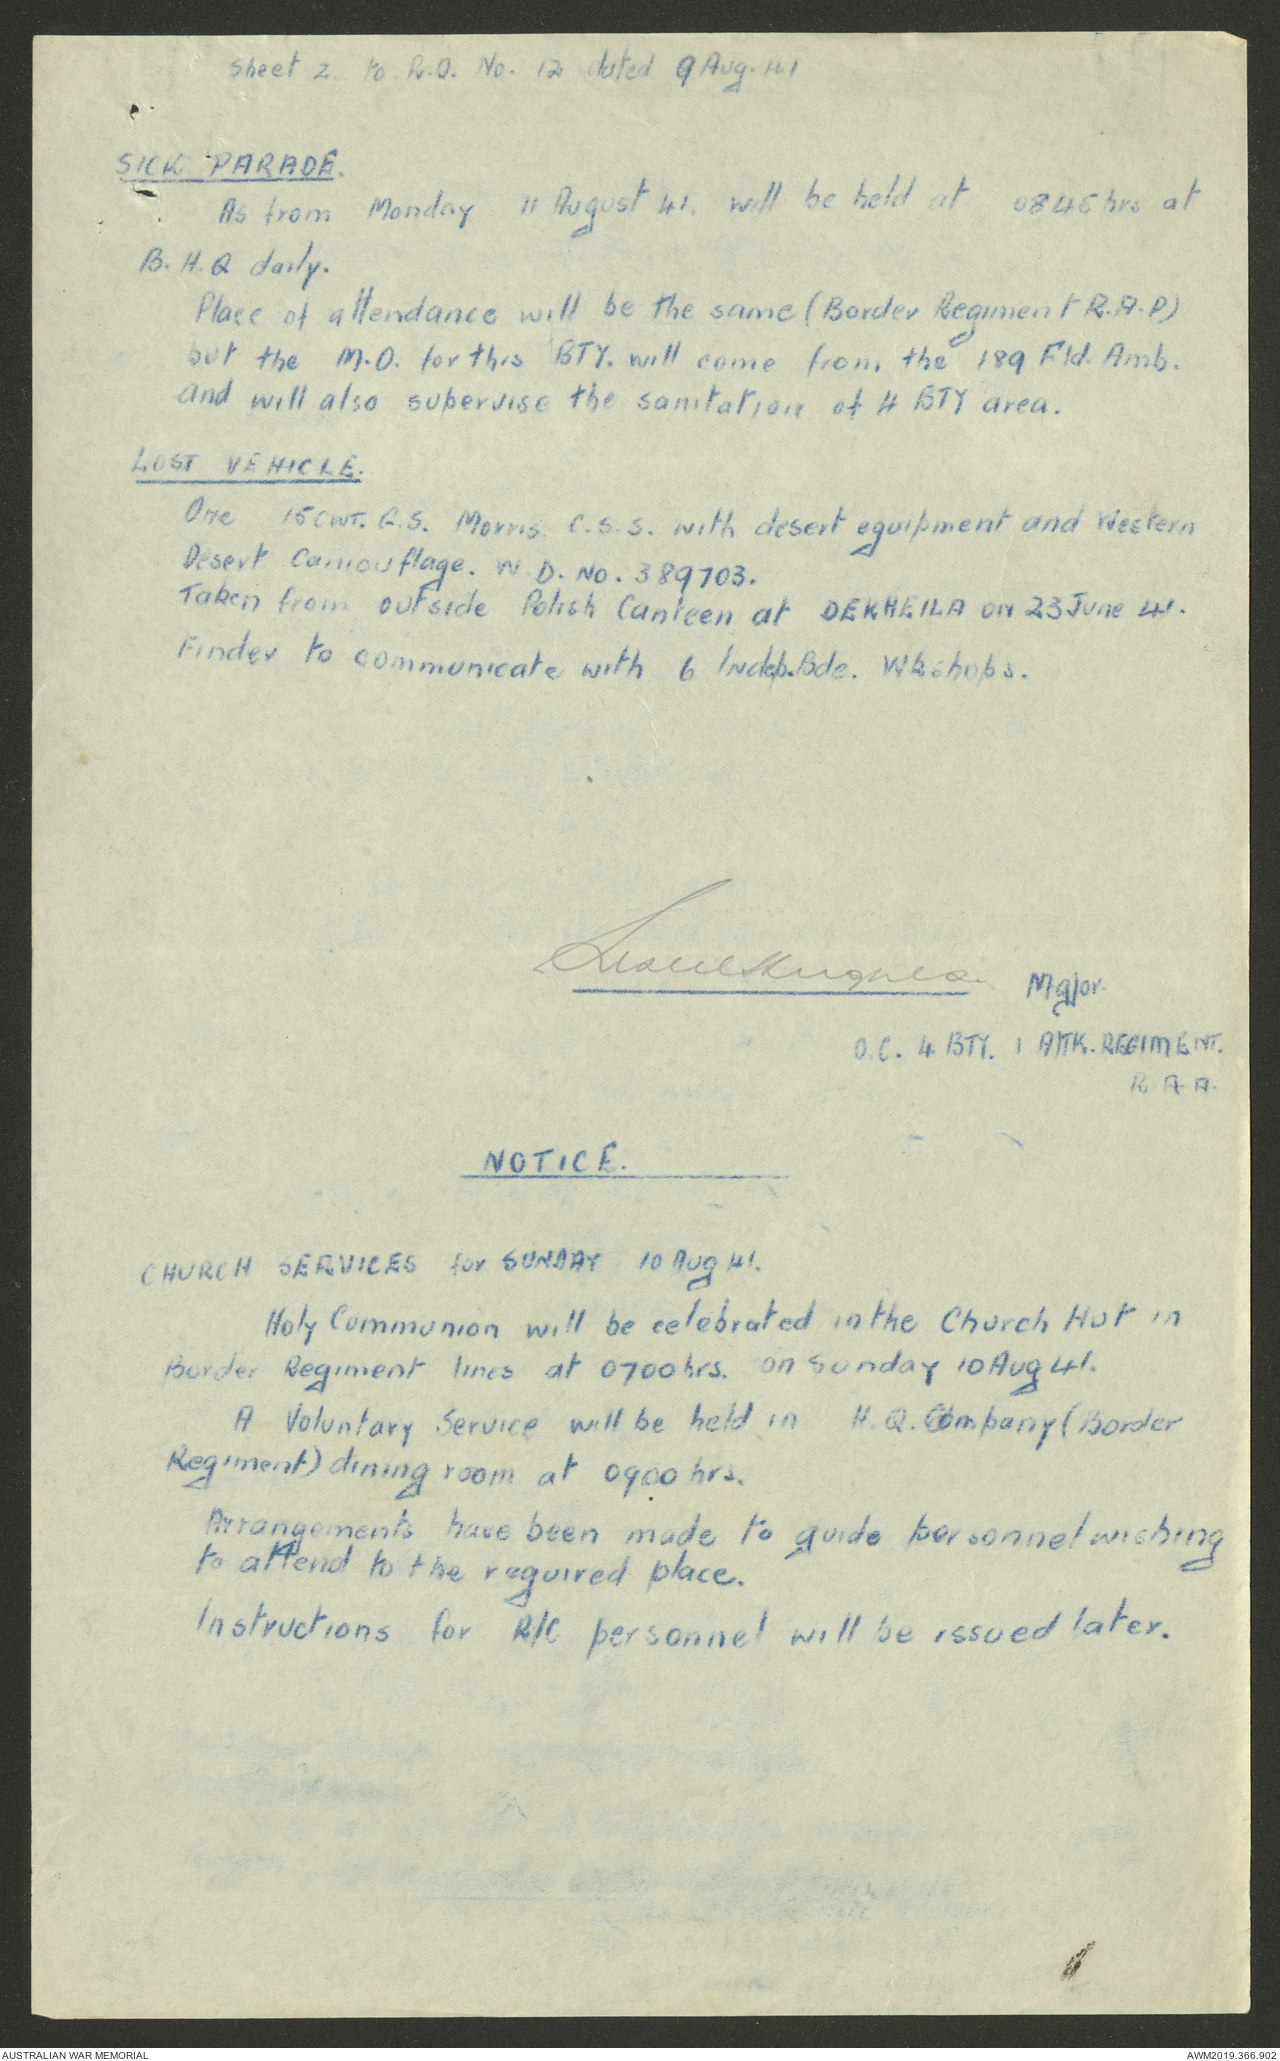 Sheet 2. to R.O. No. 12 dated 9 Aug. 41
SICK PARADE.
As from Monday 11 August 41. will be held at 0845 hrs at
B.H.Q daily.
Place of attendance will be the same (Border Regiment R.A.P)
but the M.O. for this BTY. will come from the 189 Fld. Amb.
and will also supervise the sanitation of 4 BTY area.
LOST VEHICLE.
One 15 CWT. G.S. Morris C.S.S. with desert equipment and Western
Desert Camouflage. W.D. No. 389703.
Taken from outside Polish Canteen at DEKHEILA on 23 June 41.
Finder to communicate with 6 Indep. Bde. Wkshops.
Major.
O.C. 4 BTY. 1 A/TK. REGIMENT.
R.A.A.
NOTICE.
CHURCH SERVICES for SUNDAY 10 Aug 41.
Holy Communion will be celebrated in the Church Hut in
Border Regiment lines at 0700 hrs. on Sunday 10 Aug 41.
A Voluntary Service will be held in H.Q. Company (Border
Regiment) dining room at 0900 hrs.
Arrangements have been made to guide personnel wishing
to attend to the required place.
Instructions for R/C personnel will be issued later.
AUSTRALIAN WAR MEMORIAL
AWM2019.366.902